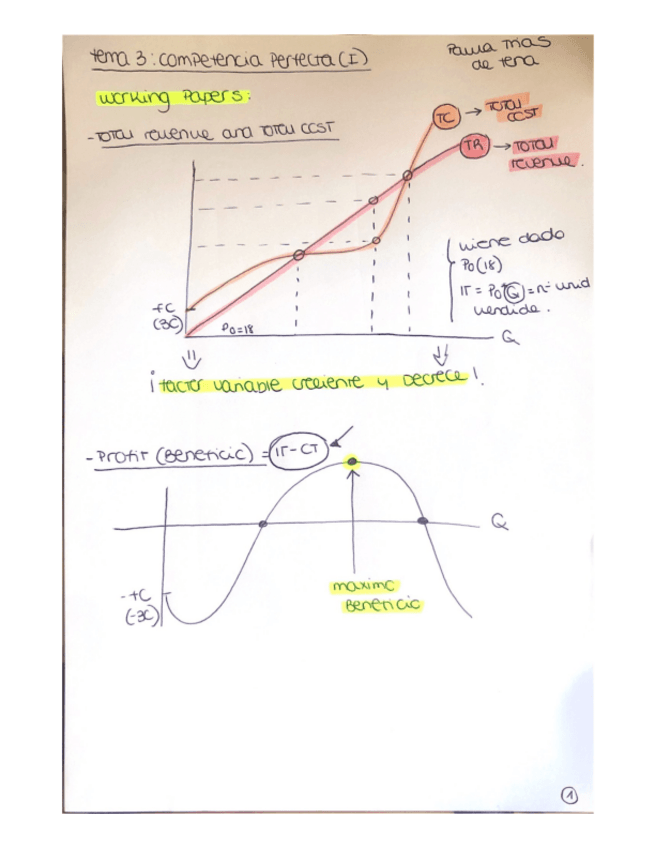 tema 3: competencia perfecta (I)
Paula Trias
de tena
working Papers:
- TOTAL revenue and TOTAL COST
TC → TOTAL
COST
TR → TOTAL
revenue.
viene dado
Po (18)
IT = Po Q = nº unid
vendida.
FC
(30)
Po=18
Q
¡ factor variable creciente y Decrece !
- Profit (Beneficio) = IT - CT
Q
- FC
(-30)
maximo
Beneficio
1